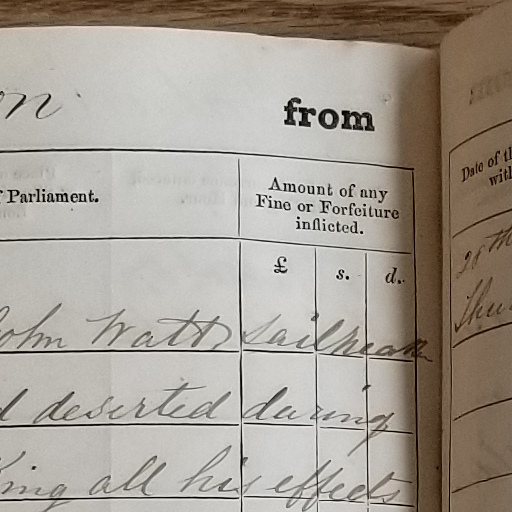 on from
f Parliament.
Amount of any
Fine or Forfeiture
inflicted.
£ s. d.
John Watts Sailmaker
d deserted during
King all his effects
Date of th
with
28th